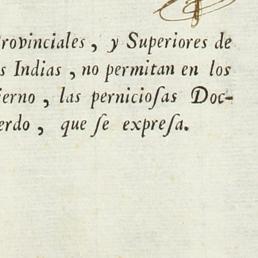 rovinciales, y Superiores de
s Indias, no permitan en los
ierno, las pernicioſas Doc-
erdo, que ſe expreſa.